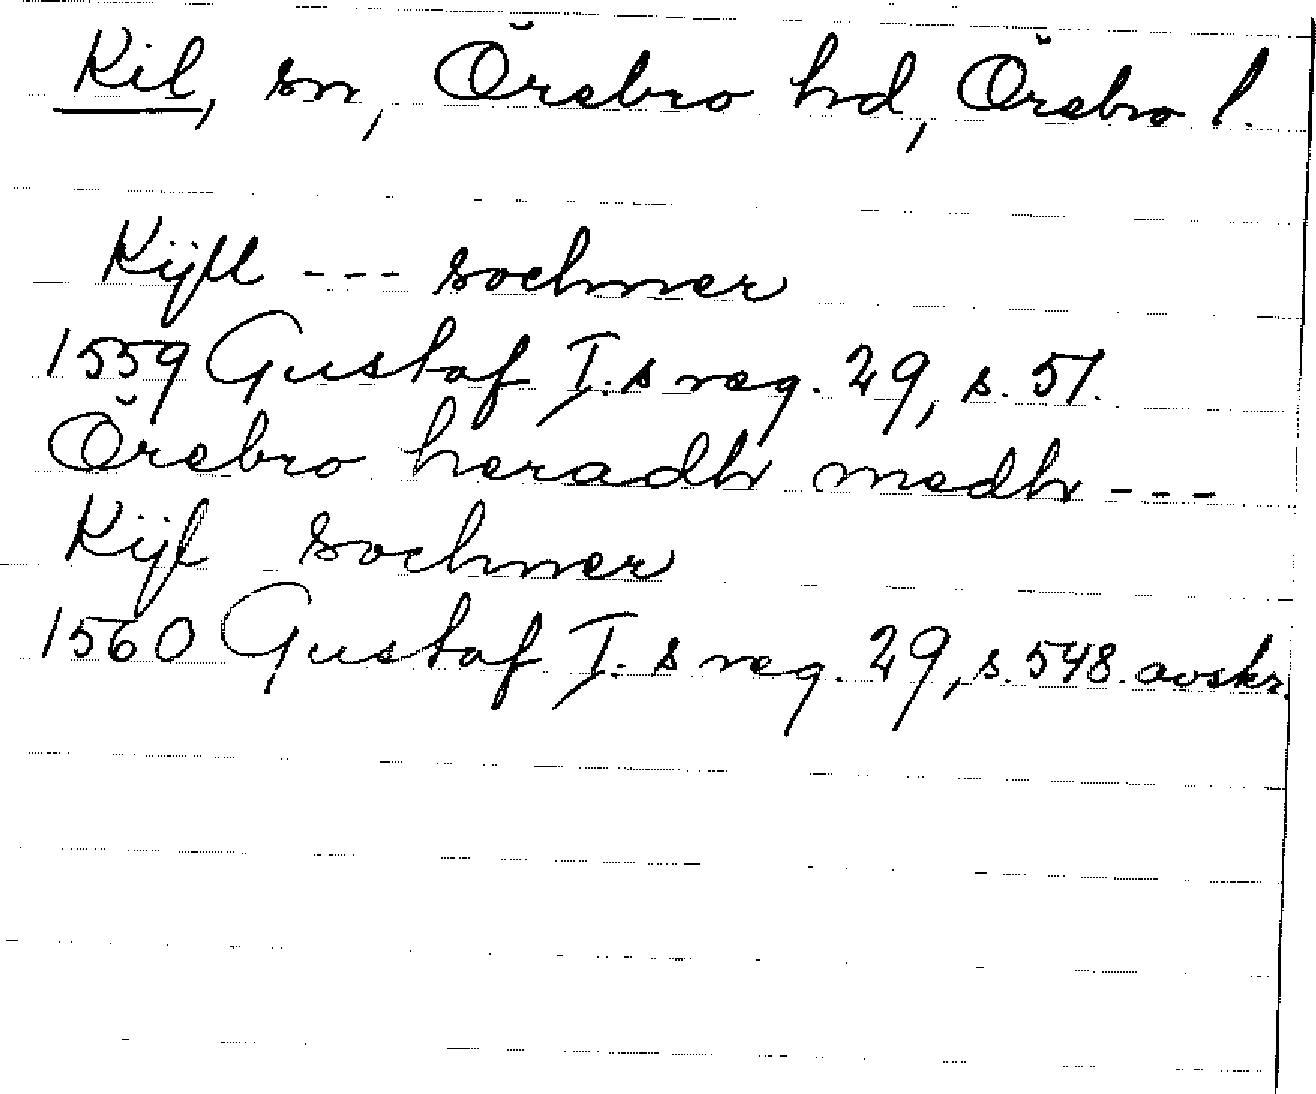 Kil, sn, Örebro hd, Örebro l.
Kijll --- sochner
1559 Gustaf I.s reg. 29, s. 51.
Örebro heradh medh ---
Kijl sochner
1560 Gustaf I.s reg. 29, s. 548. avskr.